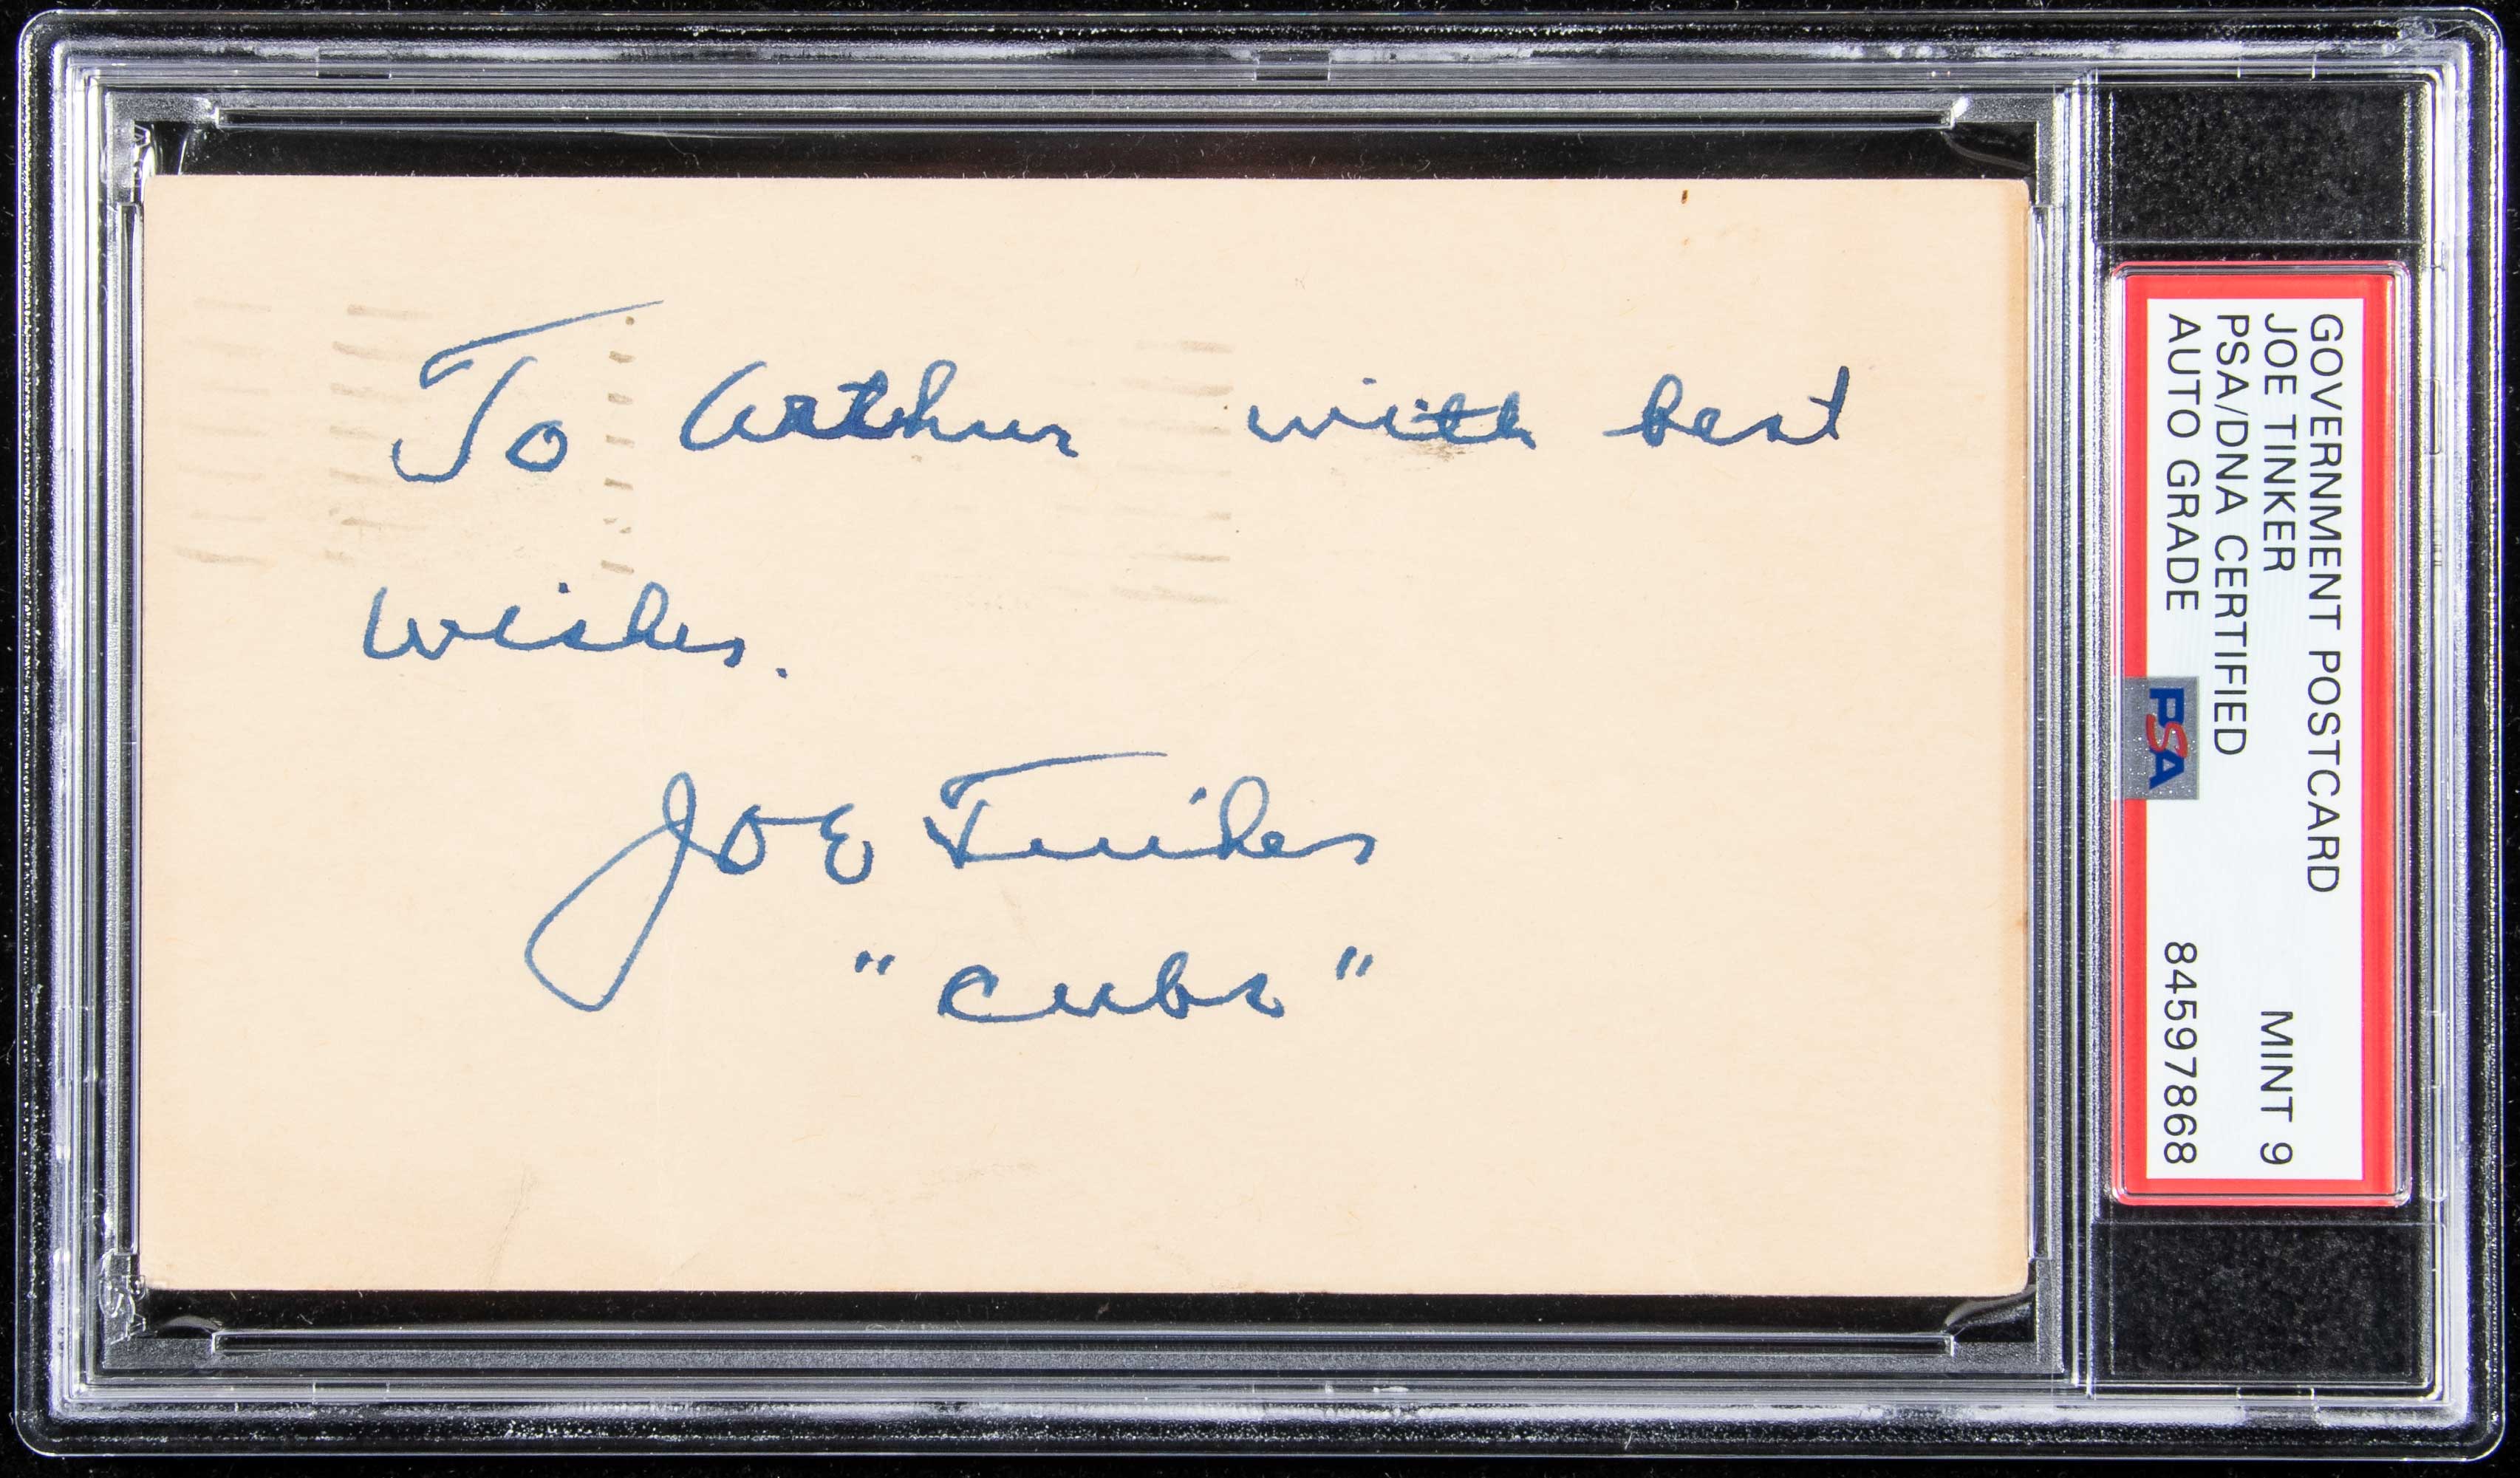 To Arthur with best
wishes.
Joe Tinker
"Cubs"
GOVERNMENT POSTCARD
JOE TINKER MINT 9
PSA/DNA CERTIFIED
AUTO GRADE 84597868
PSA